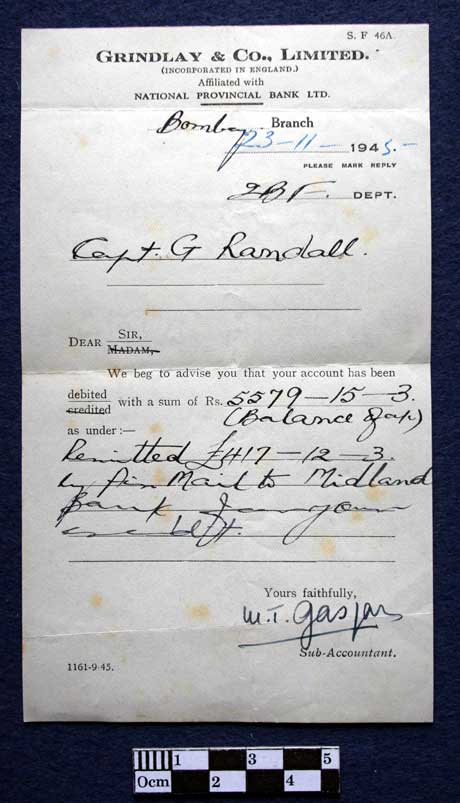 S. F 46A
GRINDLAY & CO., LIMITED.
(INCORPORATED IN ENGLAND.)
Affiliated with
NATIONAL PROVINCIAL BANK LTD.
Bombay Branch
23-11-1945-
PLEASE MARK REPLY
DEPT.
Capt. G Randall.
DEAR SIR,
MADAM,
We beg to advise you that your account has been
debited
credited with a sum of Rs. 5579-15-3.
(Balance of a/c)
as under:—
Remitted £417-12-3.
by Air Mail to Midland
Bank for your
credit.
Yours faithfully,
M.T. Gaspar
Sub-Accountant.
1161-9-45.
0cm 1 2 3 4 5